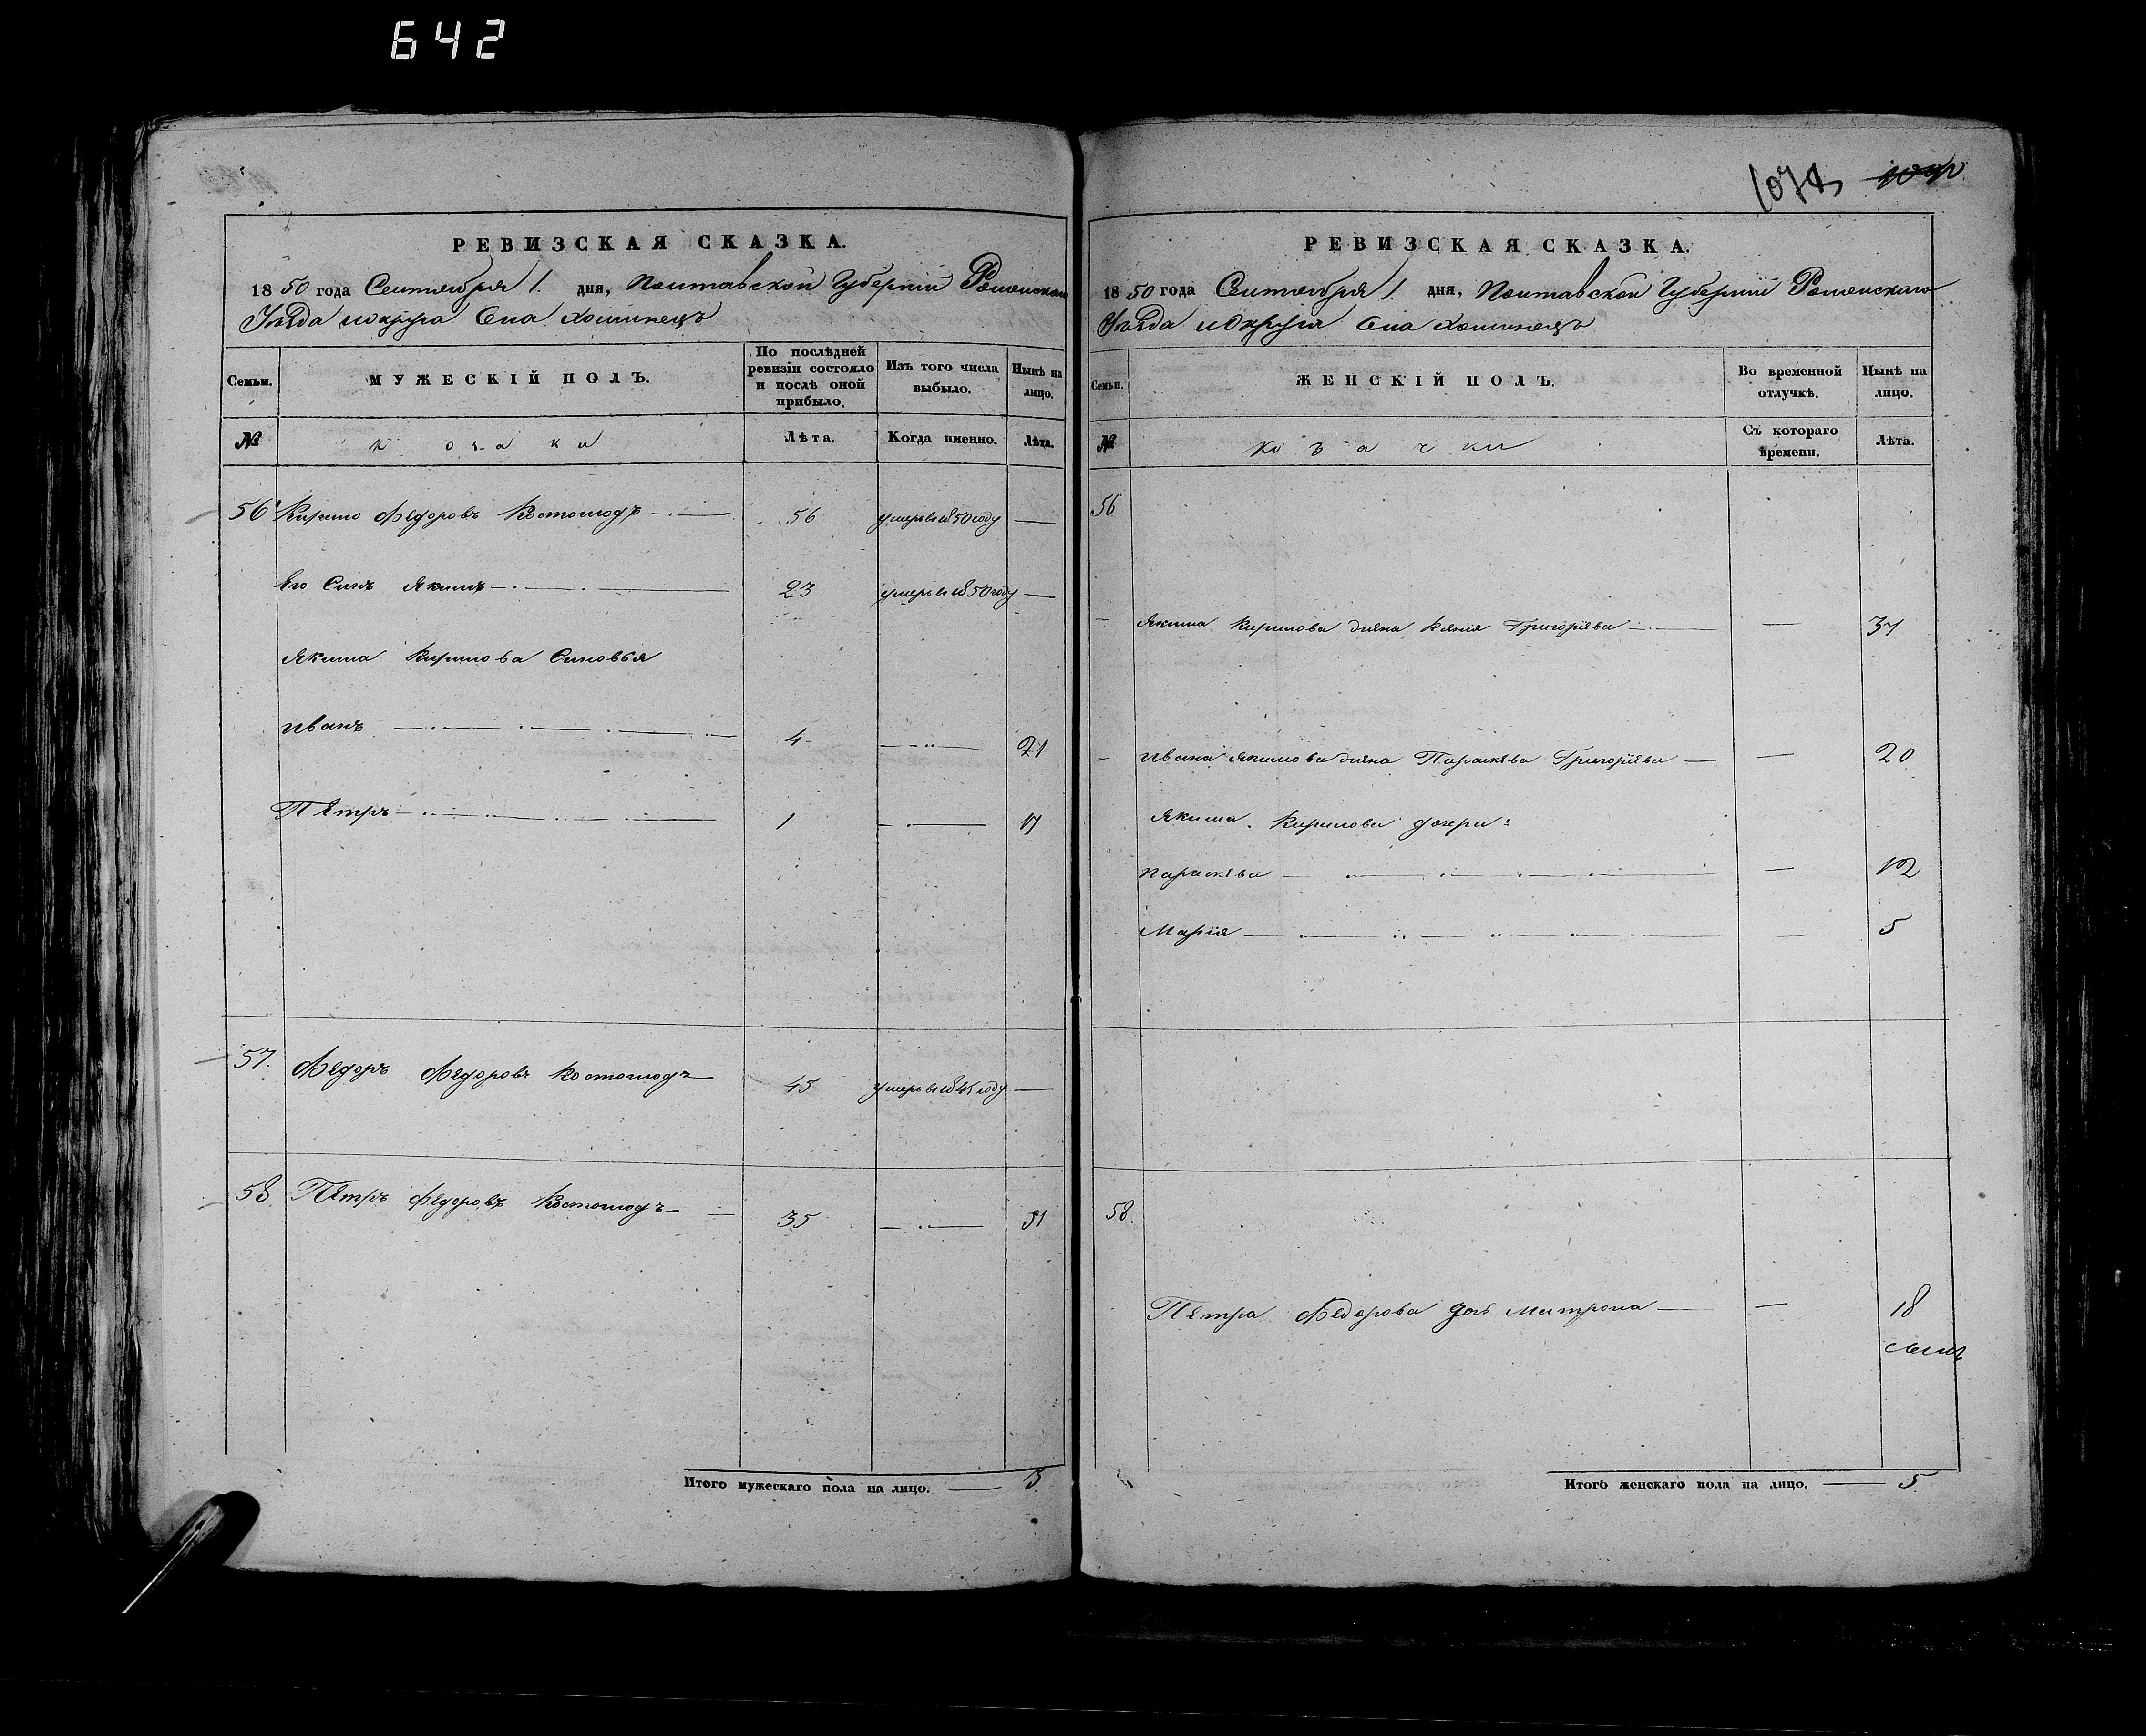 642
1074
РЕВИЗСКАЯ СКАЗКА.
1850 года Сентября 1. дня, Полтавской Губерніи Роменскаго
Уѣзда и округа Села
Семьи.
МУЖЕСКІЙ ПОЛЪ.
По послѣдней ревизіи состояло и послѣ оной прибыло.
Изъ того числа выбыло.
Нынѣ на лицо.
№
козаки
Лѣта.
Когда именно.
Лѣта.
56 Кирило Федоровъ Костогло​дъ 56 умеръ в 1850 году —
Его Сынъ Якимъ 23 умеръ в 1850 году —
Якима Кирилова Синовья
Иванъ 4 — 21
Петръ 1 — 17
57. Федоръ Федоровъ 45 умеръ в 1845 году —
58 Петръ Федоровъ 35 — 51
Итого мужескаго пола на лицо. — 3
РЕВИЗСКАЯ СКАЗКА.
1850 года Сентября 1. дня, Полтавской Губерніи Роменскаго
Уѣзда и Округа Села
Семьи.
ЖЕНСКІЙ ПОЛЪ.
Во временной отлучкѣ.
Нынѣ на лицо.
№
козачки
Съ котораго времени.
Лѣта.
56
Якима Кирилова жена Григорієва — 37
Ивана Якимова жена Параскева Григорієва — 20
Якима Кирилова дочери:
Параскева — 12
Марія — 5
58.
Петра Федорова дочь Матрона — 18
Итого женскаго пола на лицо. — 5